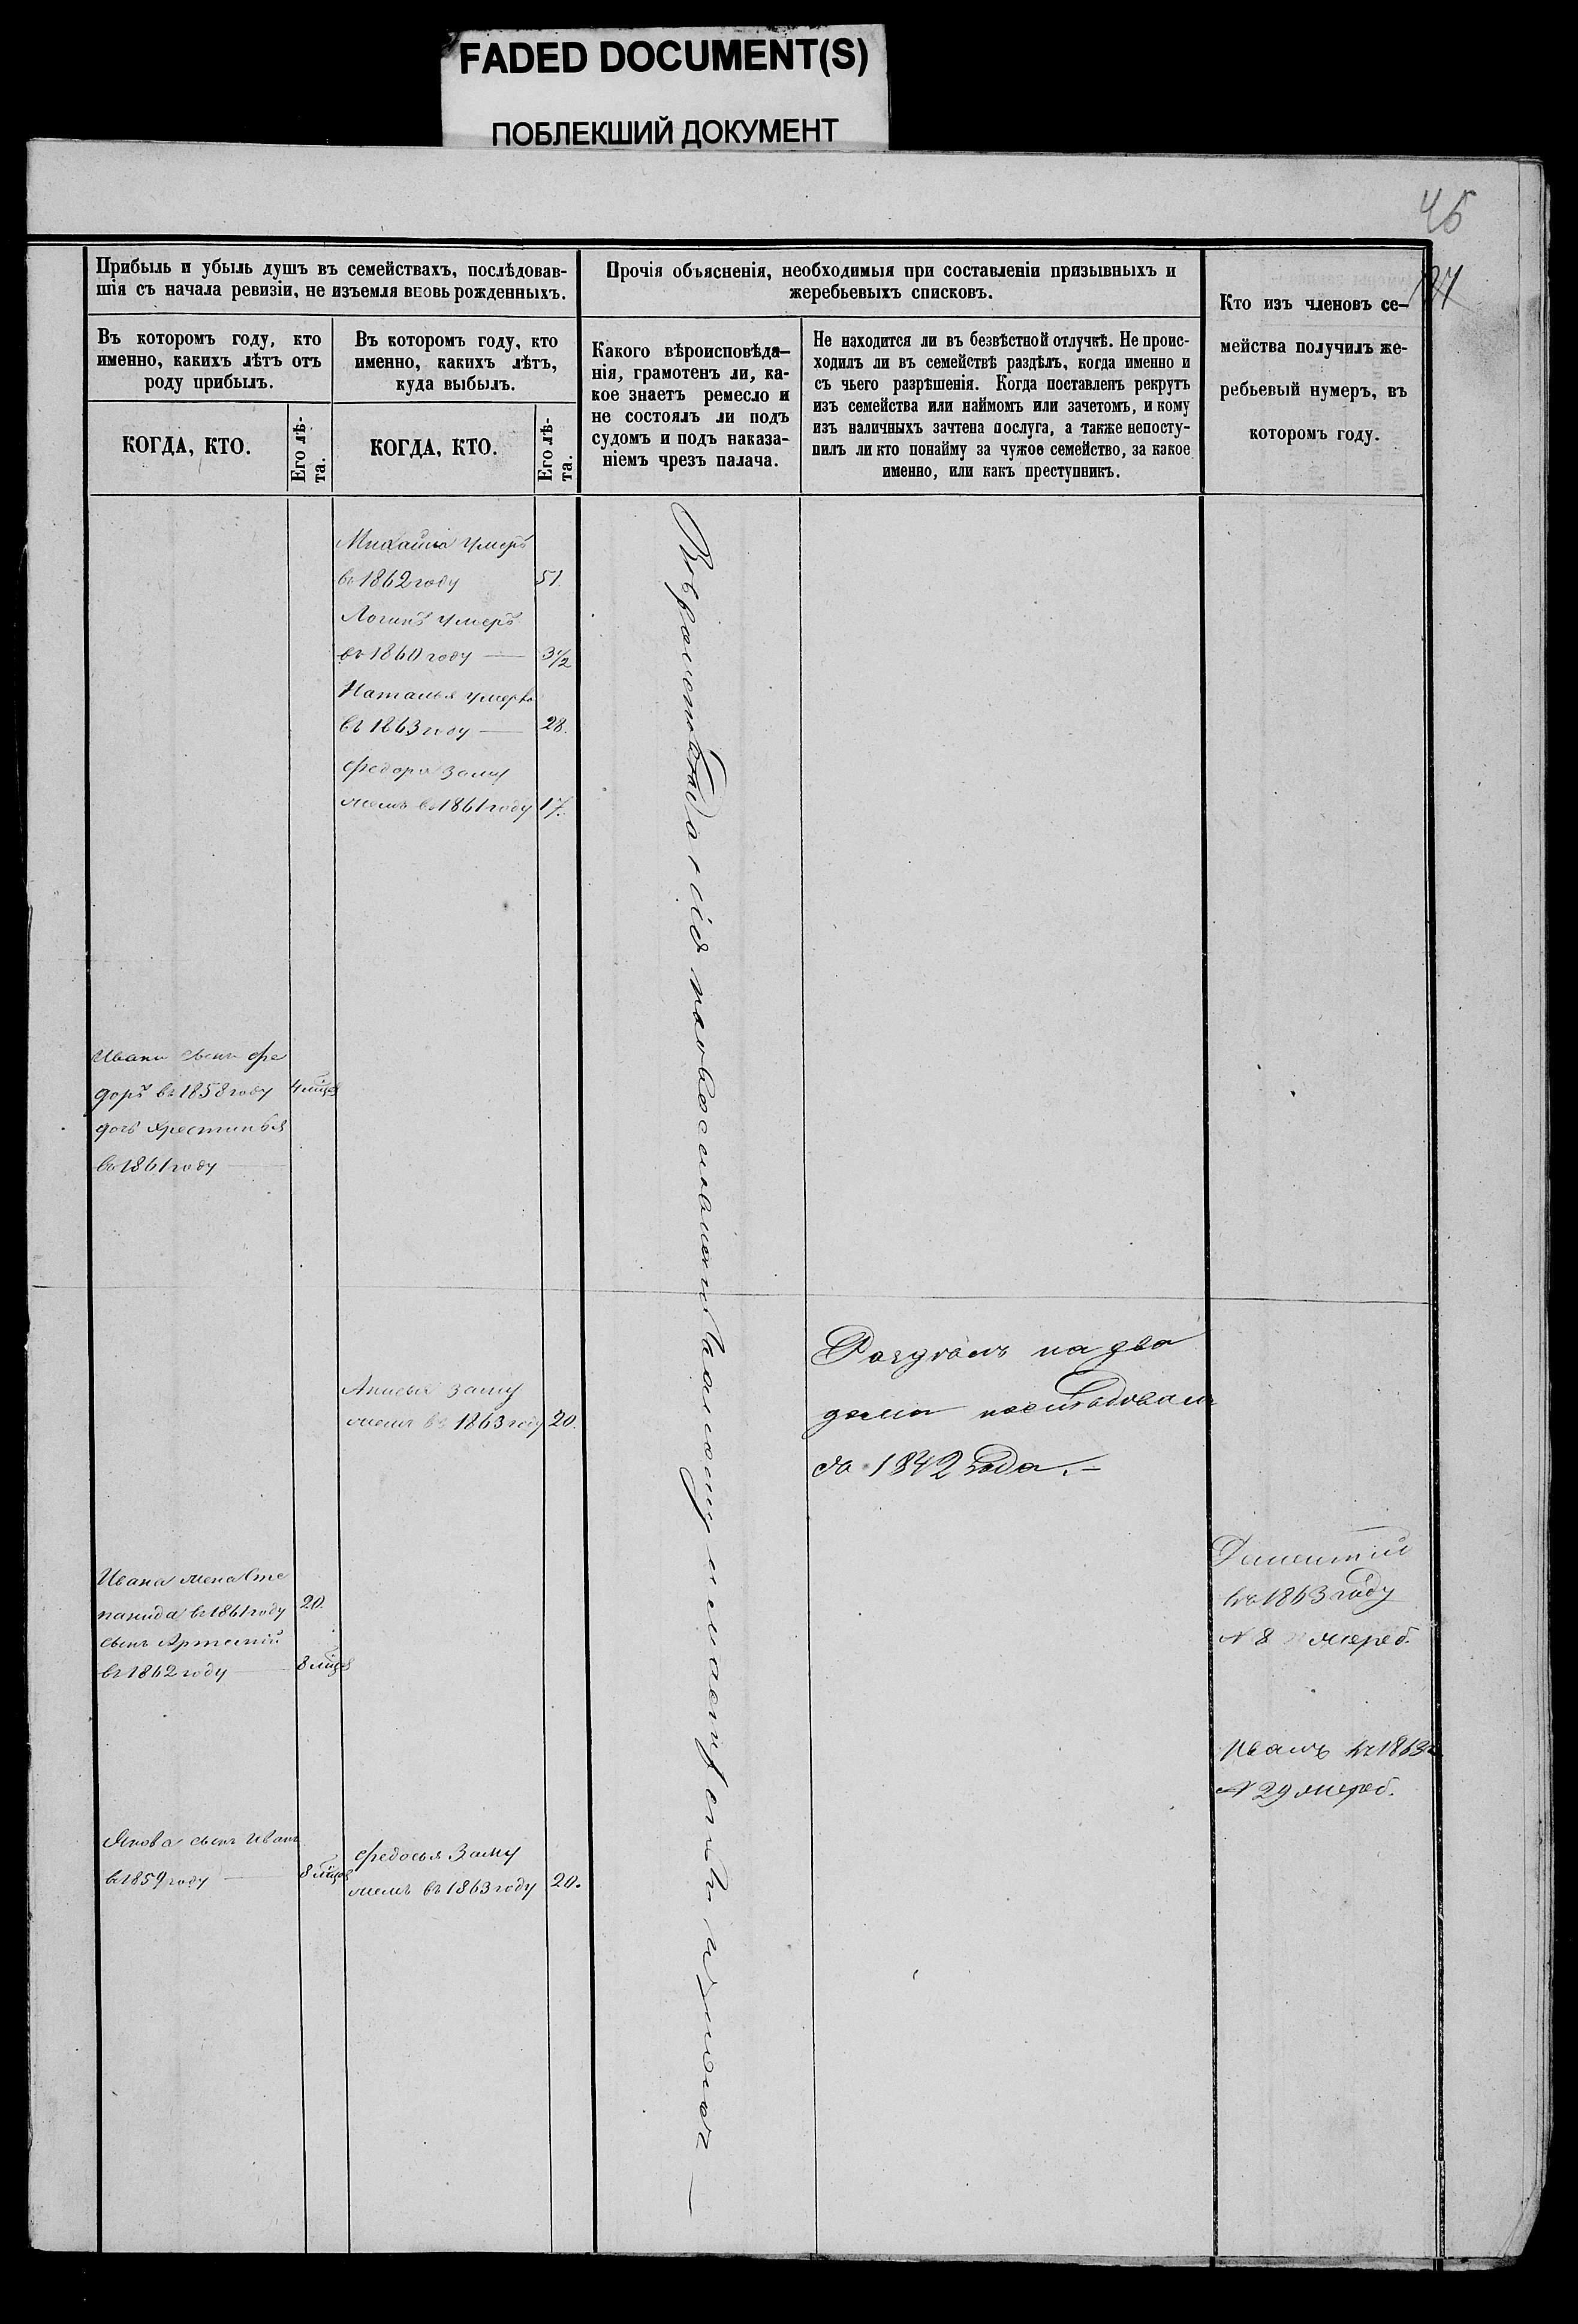 FADED DOCUMENT(S)
ПОБЛЕКШИЙ ДОКУМЕНТ
45
Прибыль и убыль душъ въ семействахъ, послѣдовав-
шія съ начала ревизіи, не изъемля вновь рожденныхъ.
Въ которомъ году, кто
именно, какихъ лѣтъ отъ
роду прибылъ.
Въ которомъ году, кто
именно, какихъ лѣтъ,
куда выбылъ.
КОГДА, КТО.
Его лѣ-
та.
КОГДА, КТО.
Его лѣ-
та.
Прочія объясненія, необходимыя при составленіи призывныхъ и
жеребьевыхъ списковъ.
Какого вѣроисповѣда-
нія, грамотенъ ли, ка-
кое знаетъ ремесло и
не состоялъ ли подъ
судомъ и подъ наказа-
ніемъ чрезъ палача.
Не находится ли въ безвѣстной отлучкѣ. Не проис-
ходилъ ли въ семействѣ раздѣлъ, когда именно и
съ чьего разрѣшенія. Когда поставленъ рекрутъ
изъ семейства или наймомъ или зачетомъ, и кому
изъ наличныхъ зачтена послуга, а также непосту-
пилъ ли кто понайму за чужое семейство, за какое
именно, или какъ преступникъ.
Кто изъ членовъ се-
мейства получилъ же-
ребьевый нумеръ, въ
которомъ году.
Михайла умеръ
въ 1862 году 51.
Логинъ умеръ
въ 1860 году — 3 1/2
Наталья умерла
въ 1863 году — 28.
Федора заму
жемъ въ 1861 году 17.
Ивана сынъ Фе
доръ въ 1858 году 4 мѣся
дочь Хрестинья
въ 1861 году —
Анисья заму
жемъ въ 1863 году 20.
Раздѣлъ на два
дома послѣдовалъ
до 1842 года. —
Ивана жена Сте
панида въ 1861 году 20.
сынъ Артемій
въ 1862 году — 8 мѣся
въ 1863 году
№ 8 жереб.
Иванъ въ 1863 г.
№ 29 жереб.
Якова сынъ Иванъ
въ 1859 году — 8 мѣся
Федосья заму
жемъ въ 1863 году 20.